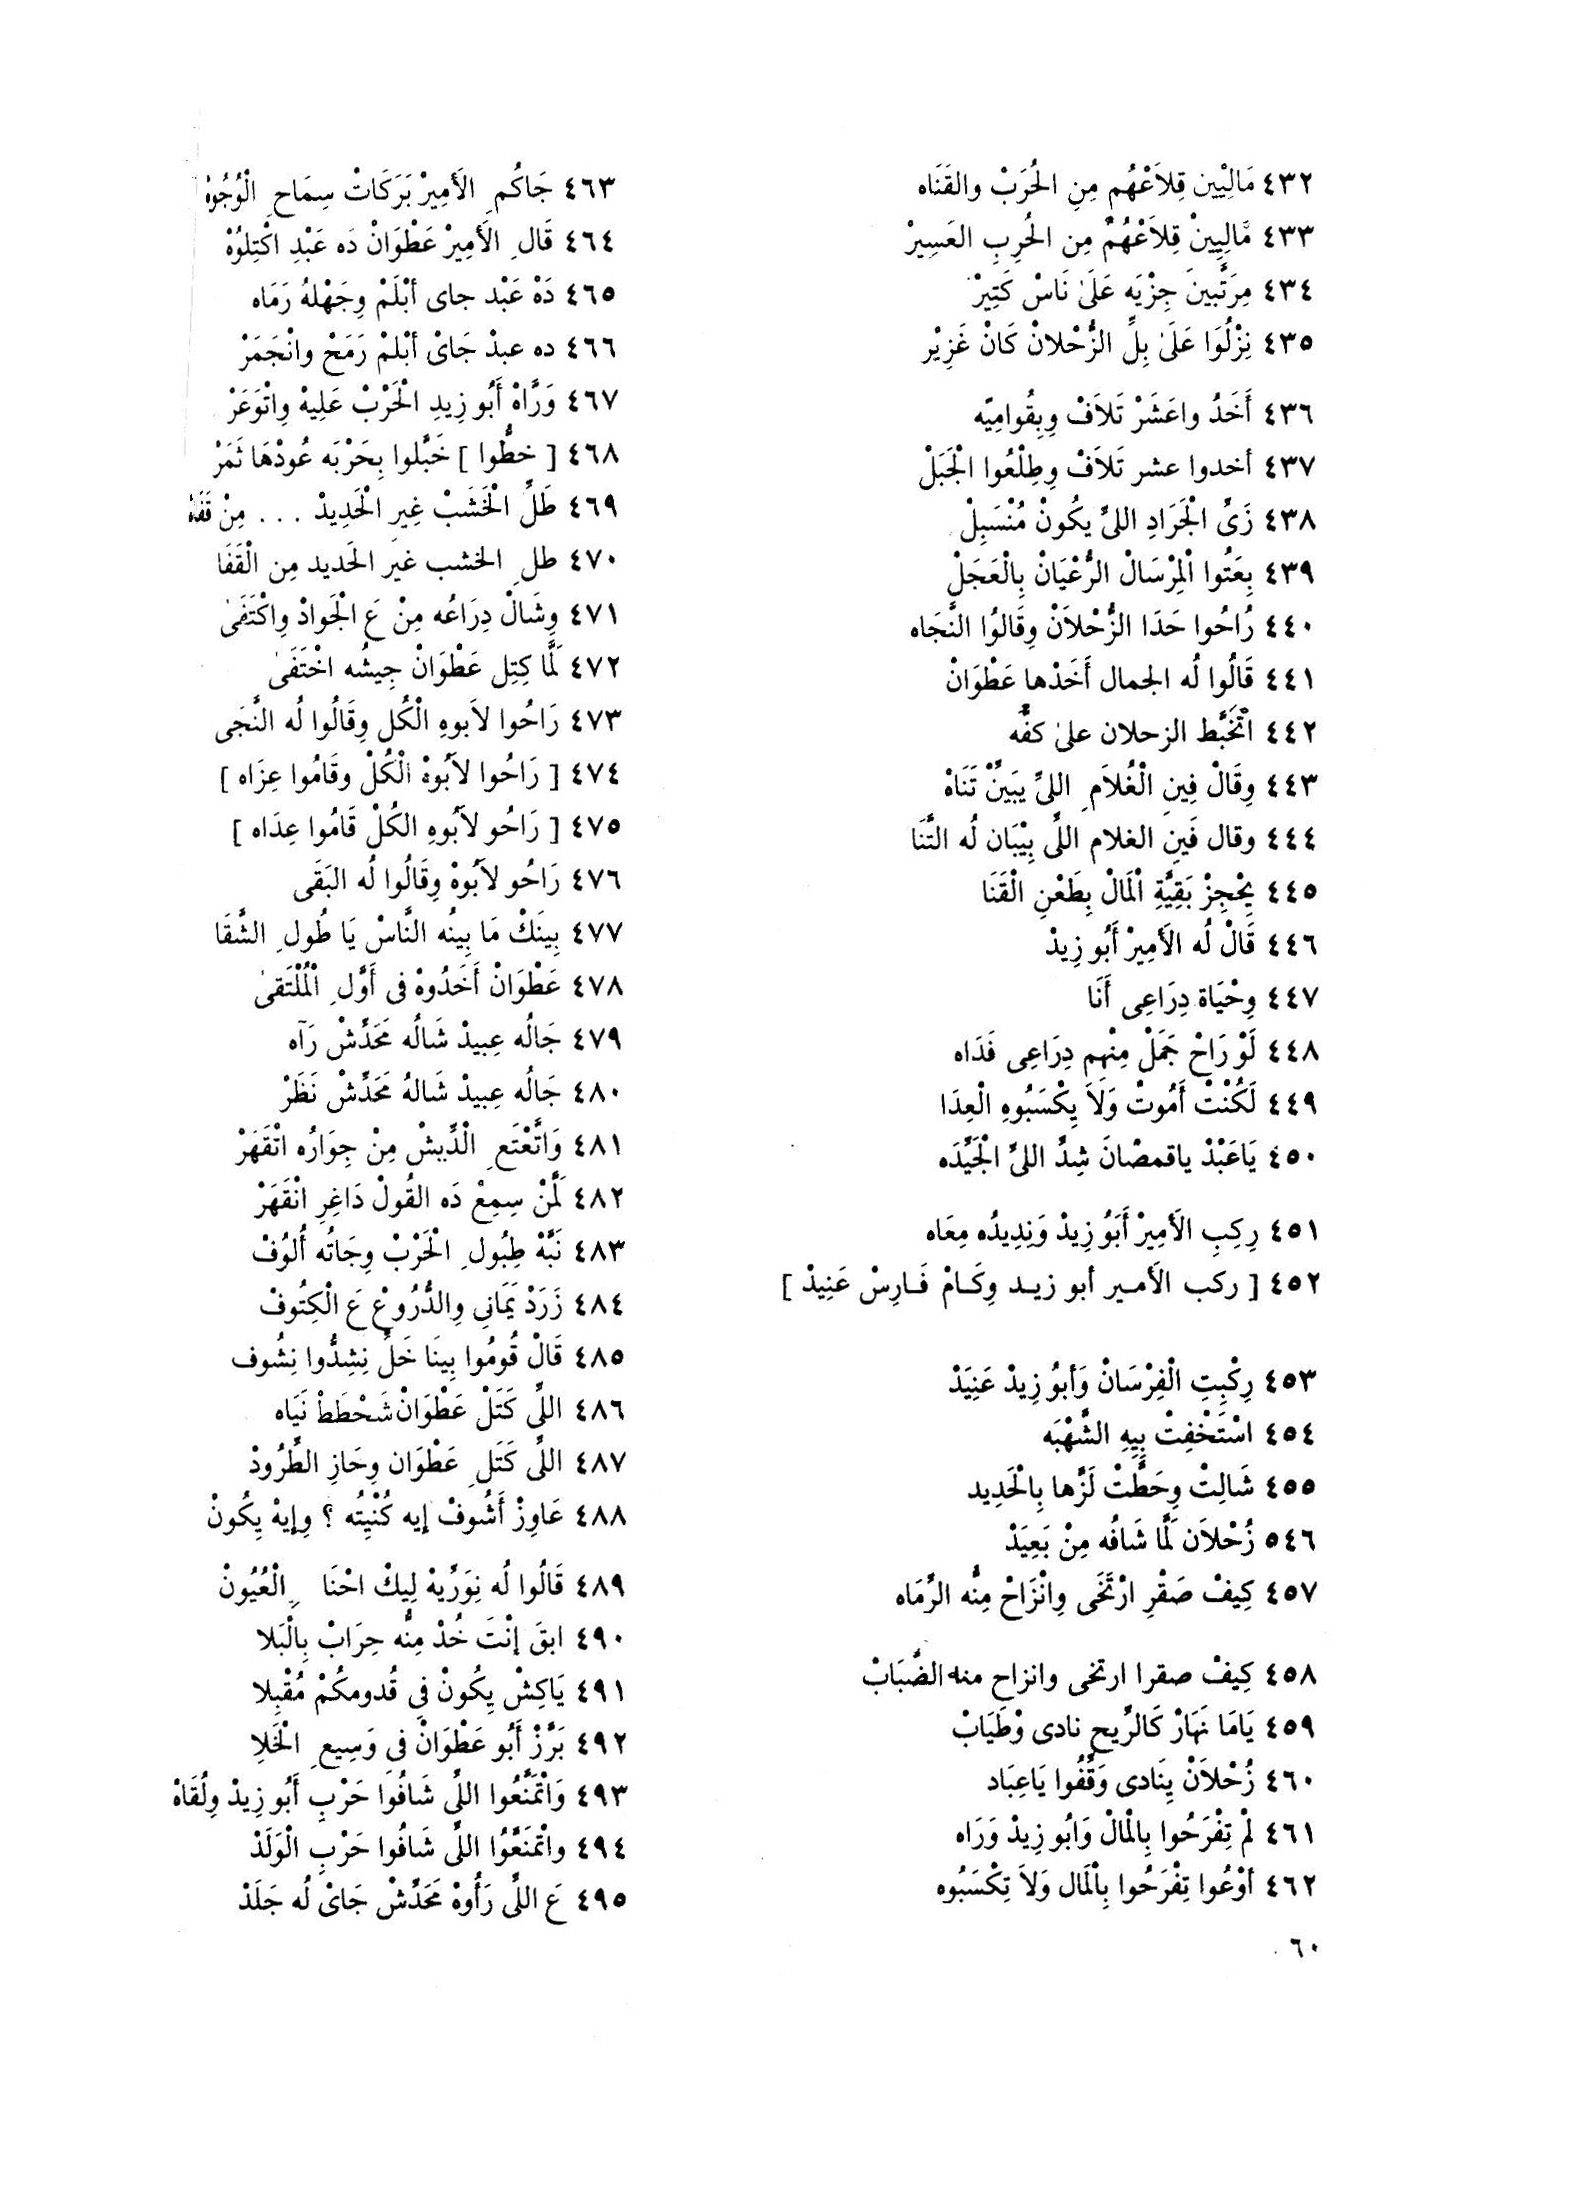 ٤٣٢ مَالِيْين قِلاَعْهُم مِنِ الحُرَبْ والقَنَاه
٤٣٣ مَّالِيِينْ قِلاَعْهُمْ مِن الحُرِبِ العَسِيرْ
٤٣٤ مِرَتَّبينَ جِزْيَه عَلَىٰ نَاسْ كَتِيرْ
٤٣٥ نِزْلُوَا عَلَىٰ بِلِّ الزُّحْلانْ كَانْ غَزِيْر
٤٣٦ أَخَدُ واعَشَرْ تَلاَفْ وِبِقُوامِيّه
٤٣٧ أخدوا عشر تَلاَفْ وِطِلْعُوا الْجَبَلْ
٤٣٨ زَىِّ الْجَرَادِ اللىِّ يكُونْ مُنْسَبِلْ
٤٣٩ بِعَتُوا الْمِرْسَالْ الرُّعْيَانْ بِالْعَجَلْ
٤٤٠ رُاحُوا حَدَا الزُّحْلاَنْ وِقَالوُا النَّجَاه
٤٤١ قَالُوا لُه الجمال أَخَدْها عَطْوَانْ
٤٤٢ اتْخَبَّط الزحلان علىٰ كفُّه
٤٤٣ وِقَالْ فِينِ الْغُلاَمِ اللىِّ يَبَيِّنْ تَنَاهْ
٤٤٤ وقال فَينِ الغلام اللِّى بِيْبَان لُه التَّنَا
٤٤٥ يِحْجِزْ بَقِيَّةِ الْمَالْ بِطَعْنِ الْقَنَا
٤٤٦ قَالْ لُه الأَمِيرْ أَبُو زِيدْ
٤٤٧ وِحْيَاة دِرَاعِى أَنَا
٤٤٨ لَوْ رَاحْ جَمَلْ مِنْهِم دِرَاعِى فَدَاه
٤٤٩ لَكُنْتْ أَمُوتْ وَلَاَ يِكْسَبُوهِ الْعِدَا
٤٥٠ يَاعَبْدْ ياقمصْانَ شِدِّ اللىِّ الْجَيِّدَه
٤٥١ رِكِبِ الأَمِيرْ أَبَوُ زِيدْ وَنِدِيدُه مِعَاه
٤٥٢ [ ركب الأمـير أبو زيـد وِكَـامْ فَـارِسْ عَنِيدْ ]
٤٥٣ رِكْبِتِ الْفِرْسَانْ وَأبوُ زِيدْ عَنِيَدْ
٤٥٤ اسْتَخْفِتْ بِيِهِ الشَّهْبَه
٤٥٥ شَالِتْ وِحَطَّتْ لَزَّها بِالْحَدِيد
٥٤٦ زُحْلاَن لَمَّا شَافُه مِنْ بَعِيَدْ
٤٥٧ كِيفْ صَقْرِ ارْتَخَى وِانْزَاحْ مِنُّه الرَّمَاه
٤٥٨ كِيفْ صقرا ارتخى وانزاح منه الضَّبَابْ
٤٥٩ يَامَا نَهَارْ كَالرِّيح نادى وْطَيَابْ
٤٦٠ زُحْلاَنْ يِنَادى وَقُفُوا يَاعِبَاد
٤٦١ لْم تِفْرَحُوا بِالْمَالْ وَابُو زِيدْ وَرَاه
٤٦٢ أوْعُوا تِفْرَحُوا بِالْمَال وَلاَ تِكْسَبُوه
٦٠
٤٦٣ جَاكُمِ الأَمِيرْ بَرَكَاتْ سِمَاحِ الْوُجُوهْ
٤٦٤ قَالِ الأَمِيرْ عَطْوَانْ دَه عَبْدِ اكْتِلوُهْ
٤٦٥ دَهْ عَبْد جاى أبْلَمْ وِجَهْلهُ رَمَاه
٤٦٦ ده عبدْ جَاىْ أبْلمْ رَمَحْ وانْجَمَرْ
٤٦٧ وَرَّاهْ أَبُو زِيدِ الْحَرْبْ عَلِيهْ وِاتْوَعَرْ
٤٦٨ [ خطُّوا ] خَبَّلوا بِحَرْبَه عُودْهَا ثَمَرْ
٤٦٩ طَلِّ الْخَشَبْ غِيرِ الْحَدِيدْ ... مِنْ قَفَاهْ
٤٧٠ طلِ الخشب غيرَ الحَديد مِن الْقَفَا
٤٧١ وِشَالْ دِرَاعُه مِنْ عَ الْجَوادْ وِاكْتَفَىٰ
٤٧٢ لَمَّا كِتِل عَطْوَانْ جِيشُه اخْتَفَىٰ
٤٧٣ رَاحُوا لاَبوهِ الْكُل وِقَالُوا لُه النَّجَى
٤٧٤ [ رَاحُوا لاَبُوهْ الْكُلْ وقَامُوا عِزَاه ]
٤٧٥ [ رَاحُو لاَبُوهِ الكُلْ قَامُوا عِدَاه ]
٤٧٦ رَاحُو لاَبُوهْ وِقَالُوا لُه البَقَى
٤٧٧ بِينَكْ مَا بِينُه النَّاسْ يَا طُولِ الشَّقَا
٤٧٨ عَطْوَانْ أَخَدُوهْ فى أَوَّلِ الْمُلْتَقىٰ
٤٧٩ جَالُه عِبيدْ شَالُه مَحَدِّشْ رَآه
٤٨٠ جَالُه عِبيدْ شَالهُ مَحَدِّشْ نَظَرْ
٤٨١ وَاتَّعْتَعِ الْدِّبِشْ مِنْ جِوَارُه اتْقَهَرْ
٤٨٢ لَمَّنْ سِمِعْ دَه القُولْ دَاغِرِ انْقَهَرْ
٤٨٣ نَبَّهْ طِبُولِ الْحَرْبْ وِجَاتُه أُلوُفْ
٤٨٤ زَرَدْ يَمَانِى وِالدُّرُوعْ عَ الْكِتُوفْ
٤٨٥ قَالْ قُومُوا بِينَا خَلِّ نِشِدُّوا نِشُوف
٤٨٦ اللِّى كَتَلْ عَطْوَانْ شَحْطَطْ نَيَاه
٤٨٧ اللِّى كَتَلِ عَطْوَان وِحَازِ الطُّرُودْ
٤٨٨ عَاوِزْ أَشُوفْ إيه كُنْيِتُه ؟ وِإيهْ يِكُونْ
٤٨٩ قَالُوا لُه نِوَرِّيهْ لِيكْ احْنَا بِالْعُيُونْ
٤٩٠ ابقَ إنْتَ خُدْ مِنُّه حِرَابْ بِالْبَلا
٤٩١ يَاكِشْ يِكُونْ فِى قُدومكُمْ مُقْبِلا
٤٩٢ بَرَّزْ أَبُو عَطْوَانْ فى وَسِيعِ الْخَلاِ
٤٩٣ وَاتْمَنَّعُوا اللِّى شَافُوَا حَرْبِ أَبُو زِيدْ وِلُقَاهْ
٤٩٤ واتْمَنَّعُوا اللِّى شَافُوا حَرْبِ الْوَلَدْ
٤٩٥ عَ اللِّى رَأُوهْ مَحَدِّشْ جَاىْ لُه جَلَدْ